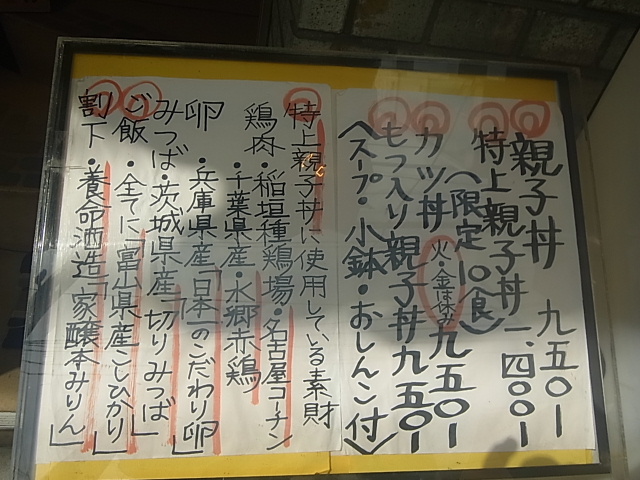 親子丼 九五〇ー
特上親子丼 一、四〇〇ー
(限定一〇食)
カツ丼 火・金は休み 九五〇ー
もつ入り親子丼 九五〇ー
(スープ・小鉢・おしんこ付)
特上親子丼に使用している素財
鶏肉・稲垣種鶏場・名古屋コーチン
・千葉県産・水郷赤鶏
卵・兵庫県産「日本一のこだわり卵」
みつば・茨城県産「切りみつば」
ご飯・全てに「富山県産こしひかり」
割下・養命酒造「家醸本みりん」